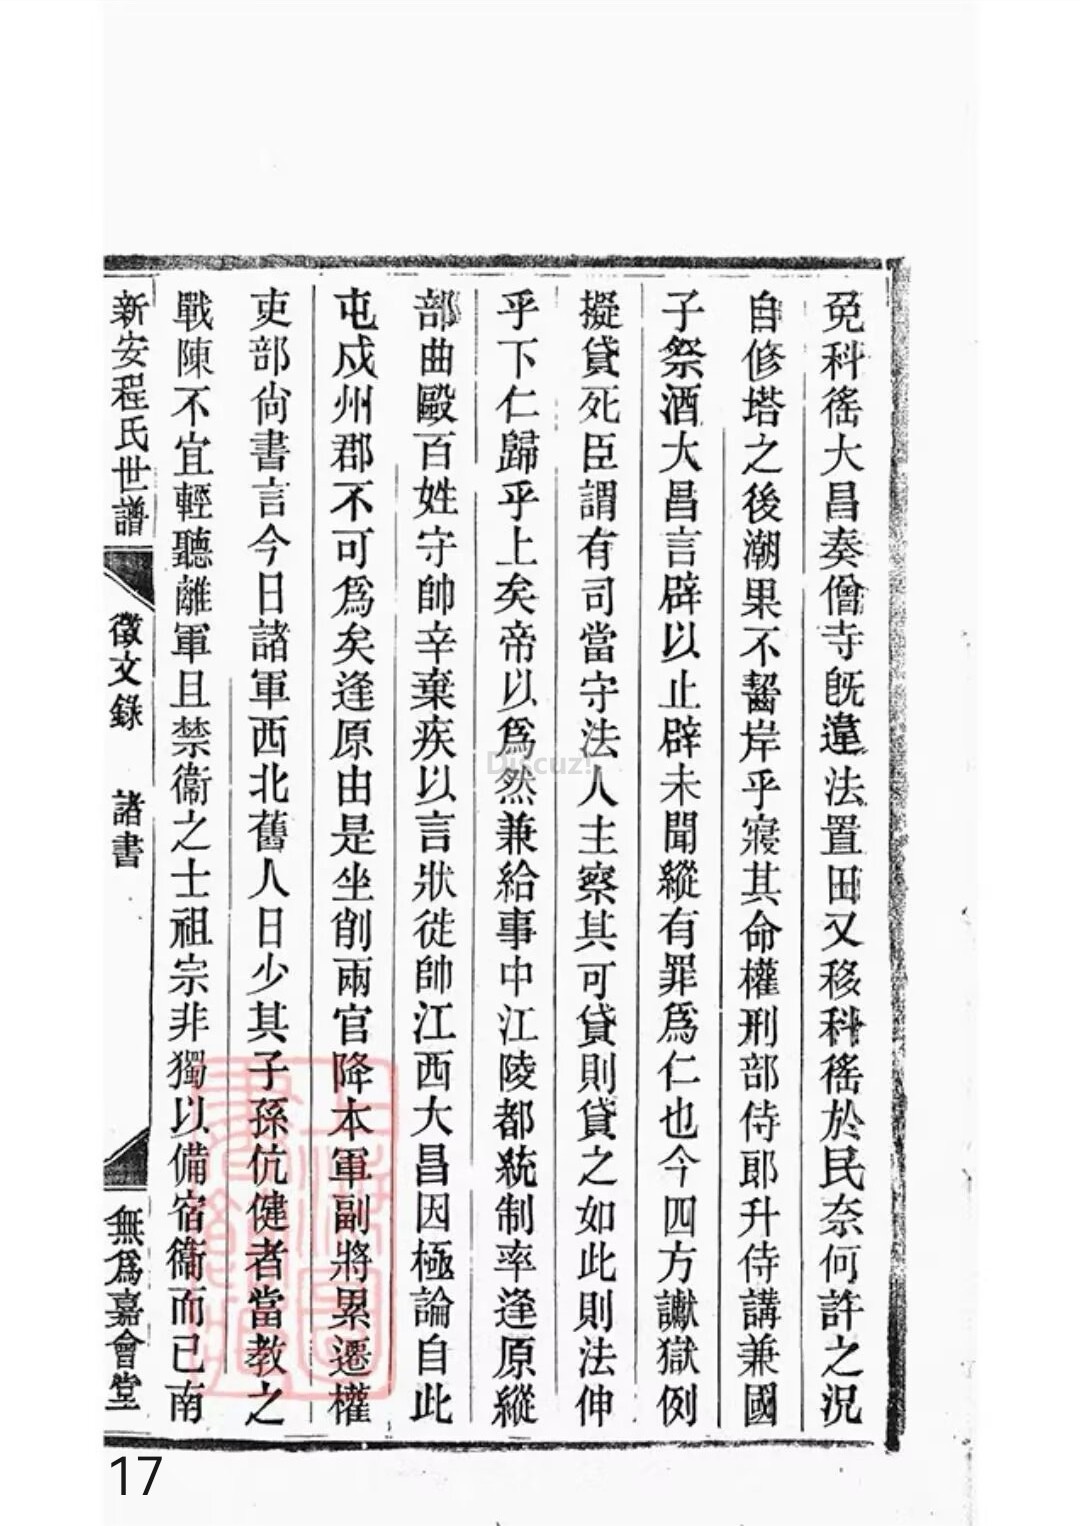 免科徭大昌奏僧寺旣違法置田又移科徭於民奈何許之況
自修塔之後潮果不齧岸乎寢其命權刑部侍郞升侍講兼國
子祭酒大昌言辟以止辟未聞縱有罪爲仁也今四方讞獄例
擬貸死臣謂有司當守法人主察其可貸則貸之如此則法伸
乎下仁歸乎上矣帝以爲然兼給事中江陵都統制率逢原縱
部曲毆百姓守帥辛棄疾以言狀徙帥江西大昌因極論自此
屯戍州郡不可爲矣逢原由是坐削兩官降本軍副將累遷權
吏部尙書言今日諸軍西北舊人日少其子孫伉健者當教之
戰陳不宜輕聽離軍且禁衞之士祖宗非獨以備宿衞而已南
新安程氏世譜 徵文錄 諸書 無爲嘉會堂
Discuz!
17